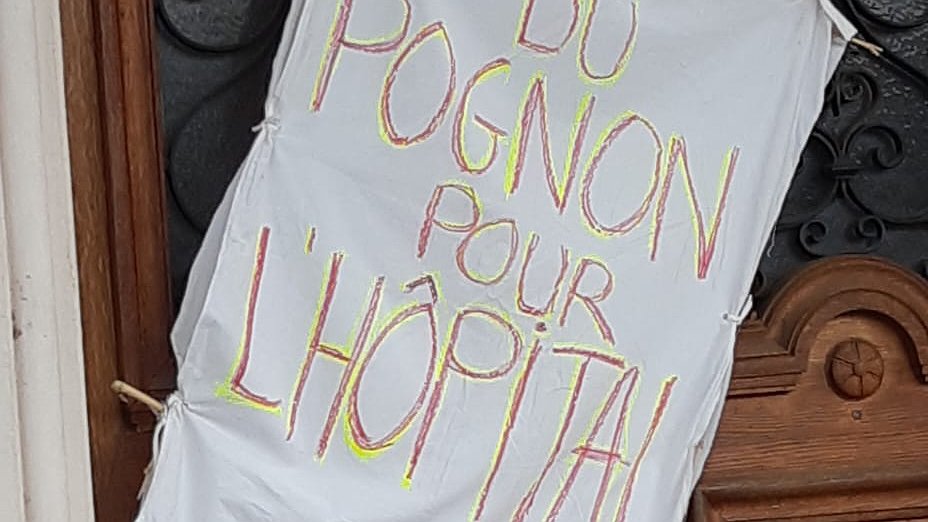 DU
POGNON
POUR
L'HÔPiTAl